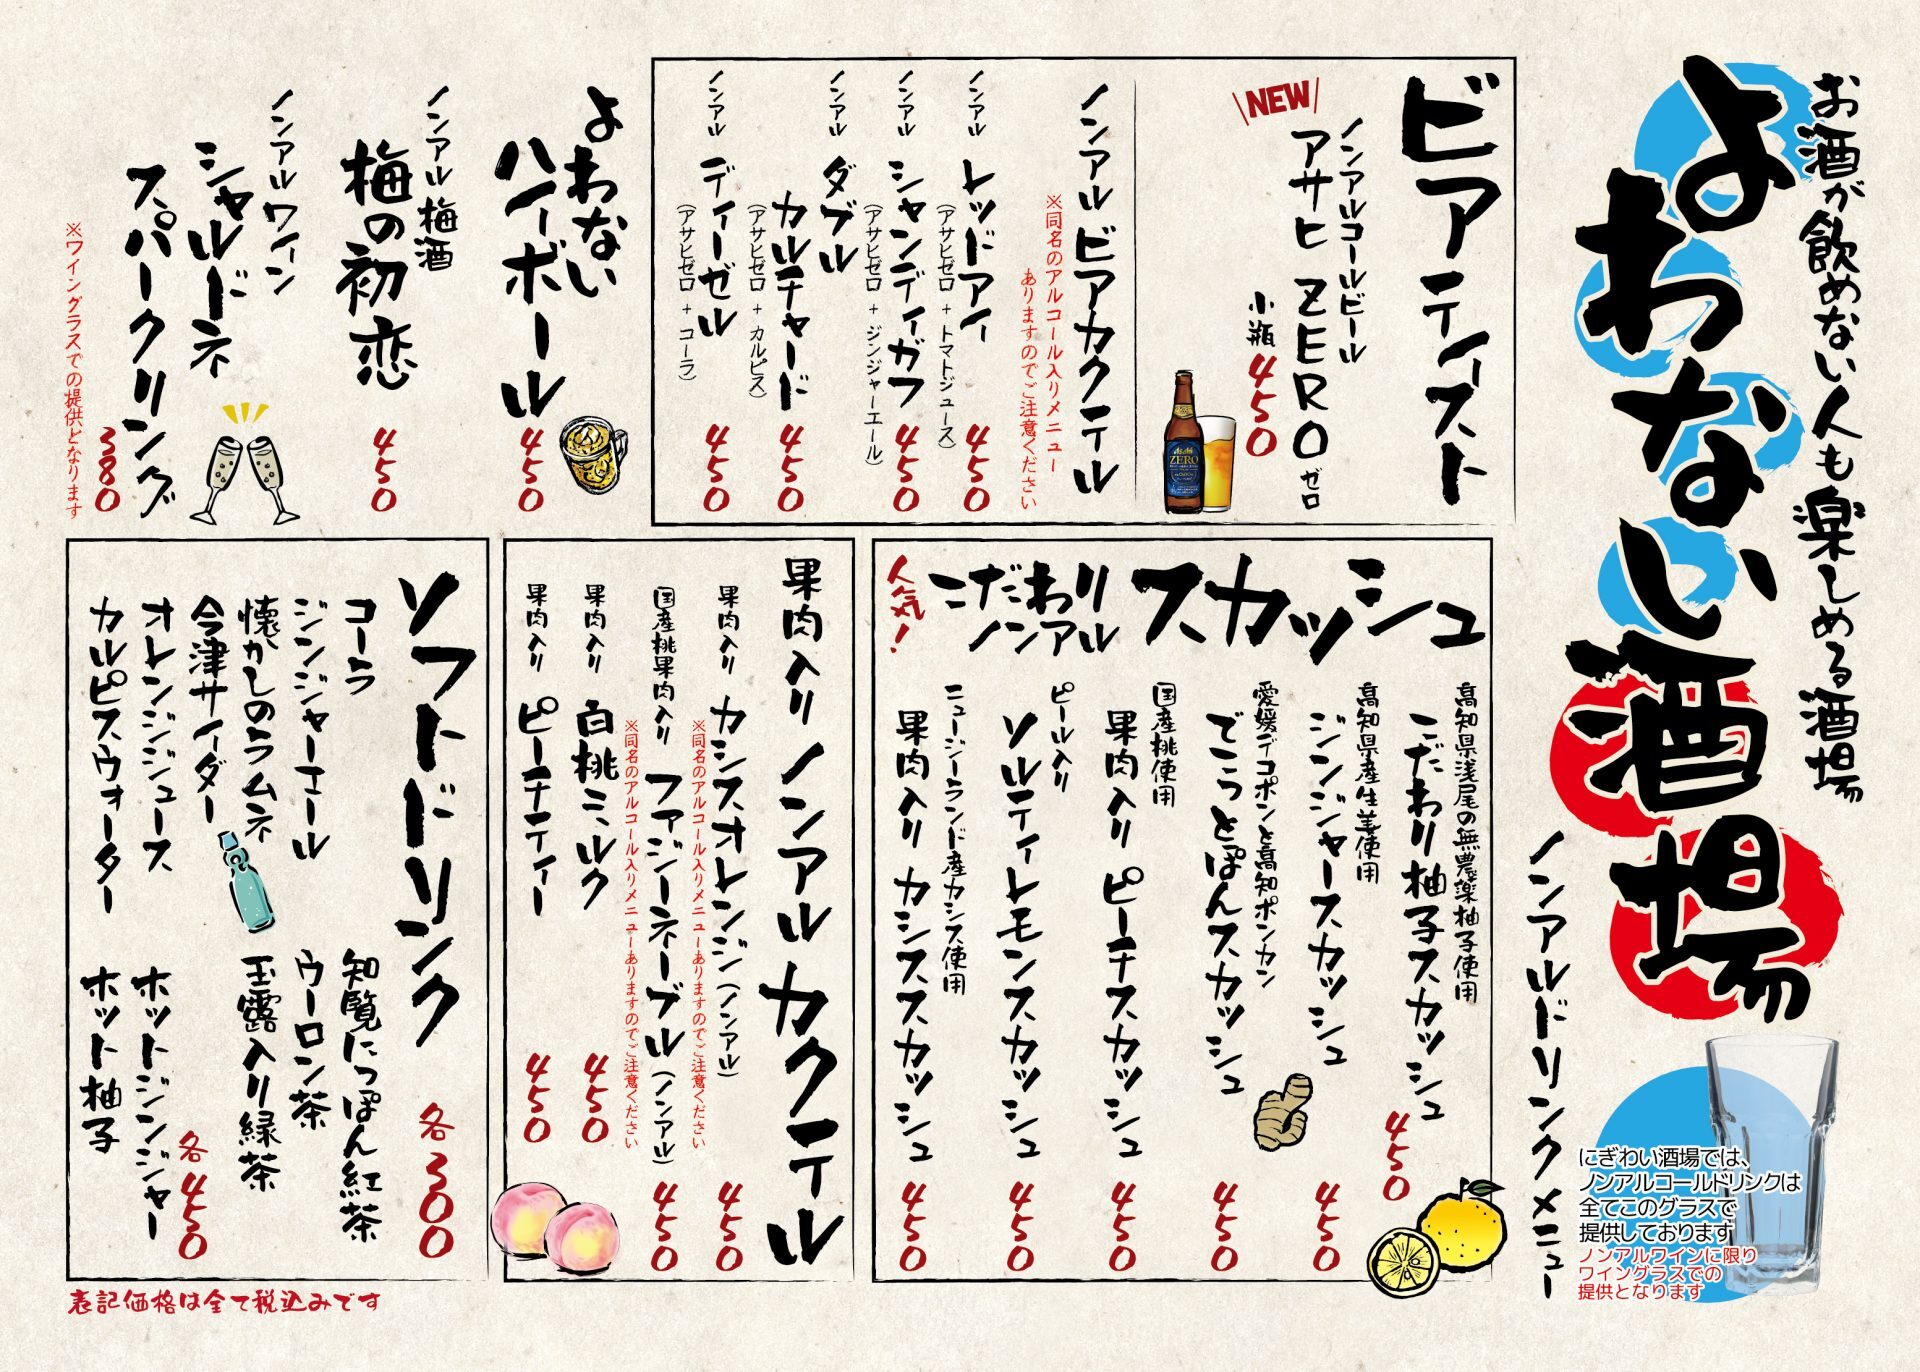 お酒が飲めない人も楽しめる酒場
よわない酒場
ノンアルドリンクメニュー
にぎわい酒場では、
ノンアルコールドリンクは
全てこのグラスで
提供しております
ノンアルワインに限り
ワイングラスでの
提供となります
ビアテイスト
NEW
ノンアルコールビール
アサヒ ZERO ゼロ
小瓶 450
Asahi
ZERO
ノンアルビアカクテル
※同名のアルコール入りメニュー
ありますのでご注意ください
ノンアル レッドアイ 450
(アサヒゼロ + トマトジュース)
ノンアル シャンディガフ 450
(アサヒゼロ + ジンジャーエール)
ノンアル ダブル
カルチャード 450
(アサヒゼロ + カルピス)
ノンアル ディーゼル 450
(アサヒゼロ + コーラ)
よわない
ハイボール 450
ノンアル梅酒
梅の初恋 450
ノンアルワイン
シャルドネ
スパークリング 380
※ワイングラスでの提供となります
スカッシュ
こだわり
ノンアル
人気!
高知県浅尾の無農薬柚子使用
こだわり柚子スカッシュ 450
高知県産生姜使用
ジンジャースカッシュ 450
愛媛デコポンと高知ポンカン
でこっとぽんスカッシュ 450
国産桃使用
果肉入りピーチスカッシュ 450
ピール入り
ソルティレモンスカッシュ 450
ニュージーランド産カシス使用
果肉入りカシススカッシュ 450
果肉入りノンアルカクテル
果肉入り カシスオレンジ(ノンアル) 450
※同名のアルコール入りメニューありますのでご注意ください
国産桃果肉入り ファジーネーブル(ノンアル) 450
※同名のアルコール入りメニューありますのでご注意ください
果肉入り 白桃ミルク 450
果肉入り ピーチティー 450
ソフトドリンク 各300
コーラ
ジンジャーエール
懐かしのラムネ
今津サイダー
オレンジジュース
カルピスウォーター
知覧にっぽん紅茶
ウーロン茶
玉露入り緑茶
各450
ホットジンジャー
ホット柚子
表記価格は全て税込みです